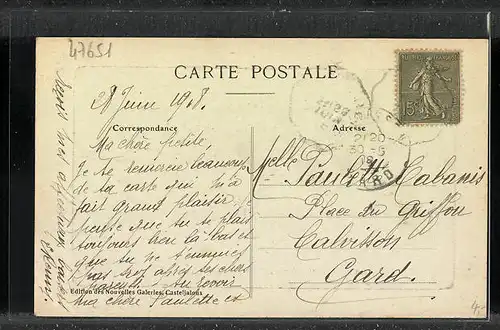 47651
CARTE POSTALE
28 Juin 1918.
Correspondance
Adresse
Ma chère petite,
Je te remercie beaucoup
de ta carte qui m'a
fait grand plaisir. Je
pense que tu te plais
toujours bien là-bas et
que tu ne t'ennuies
pas trop après tes chers
parents. Au revoir
ma chère Paulette et
Melle Paulette Cabanis
Place du Griffon
Calvisson
Gard.
Edition des Nouvelles Galeries, Casteljaloux
15
GARD